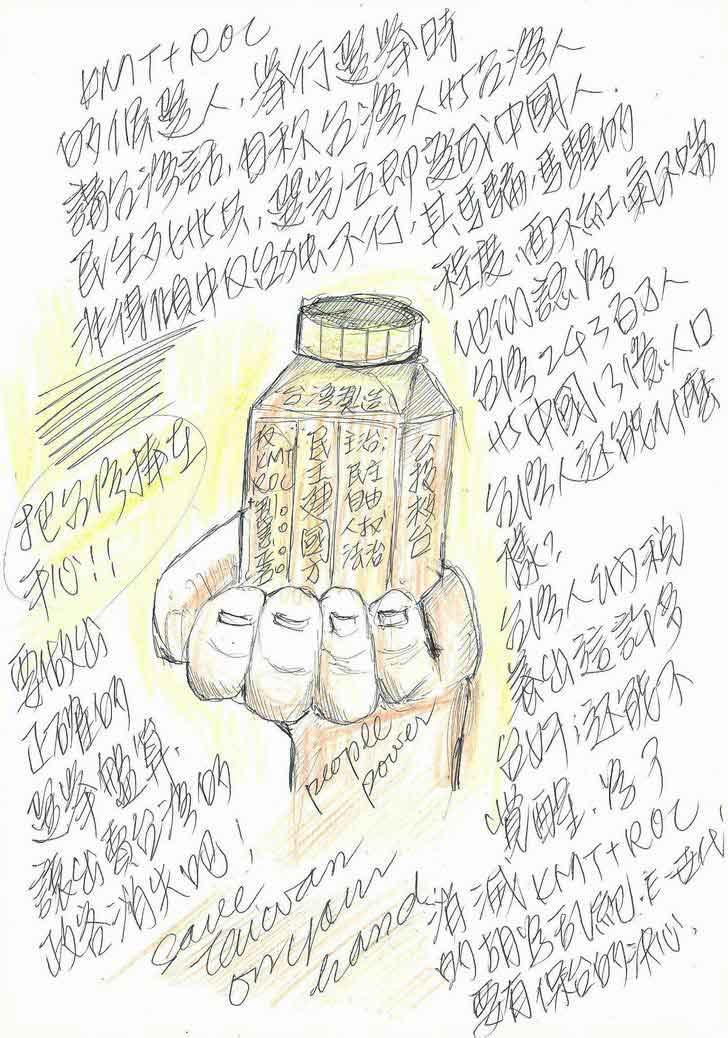 KMT+ROC
的候選人，舉行選舉時
講台灣話，自称台灣人att台灣人
民生
選完立即變成中國人
非得傾中反台独不行，其
程度，面不紅，氣不喘
他們認為
台灣 243百万人
中國13億人口
台灣人还能
樣？
台灣人納税
養出這許多
台奸；还能不
覺醒，為了
消滅KMT+ROC
的胡為乱紀．E世代
要有保台的決心．
把台灣捧在
手心!!
要做出
正確的
選舉盤算，
讓出賣台灣的
政客消失吧！
台灣製造
反KMT
ROC
民主建國方
主治：
民主
自由
人权
法治
公投救台
people
power
save
taiwan
on your
hand